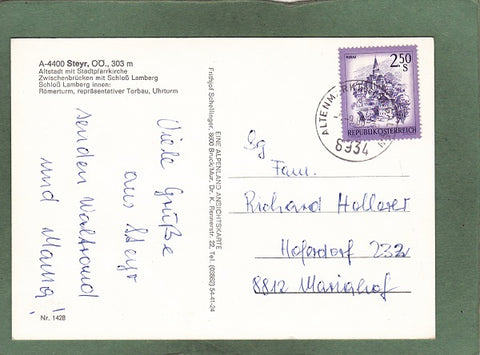 A-4400 Steyr, OÖ., 303 m
Altstadt mit Stadtpfarrkirche
Zwischenbrücken mit Schloß Lamberg
Schloß Lamberg innen:
Römerturm, repräsentativer Torbau, Uhrturm
Viele Grüße
aus Steyr
senden Waltraud
und Mama!
Nr. 1428
EINE ALPENLAND ANSICHTSKARTE
Frithjof Schellinger, 8600 Bruck/Mur, Dr. K.-Rennerstr. 22, Tel. (03862) 54-41-24
2.50
S
REPUBLIK ÖSTERREICH
8934
Sg
Fam.
Richard Hollerer
Hoferdorf 232
8812 Mariahof